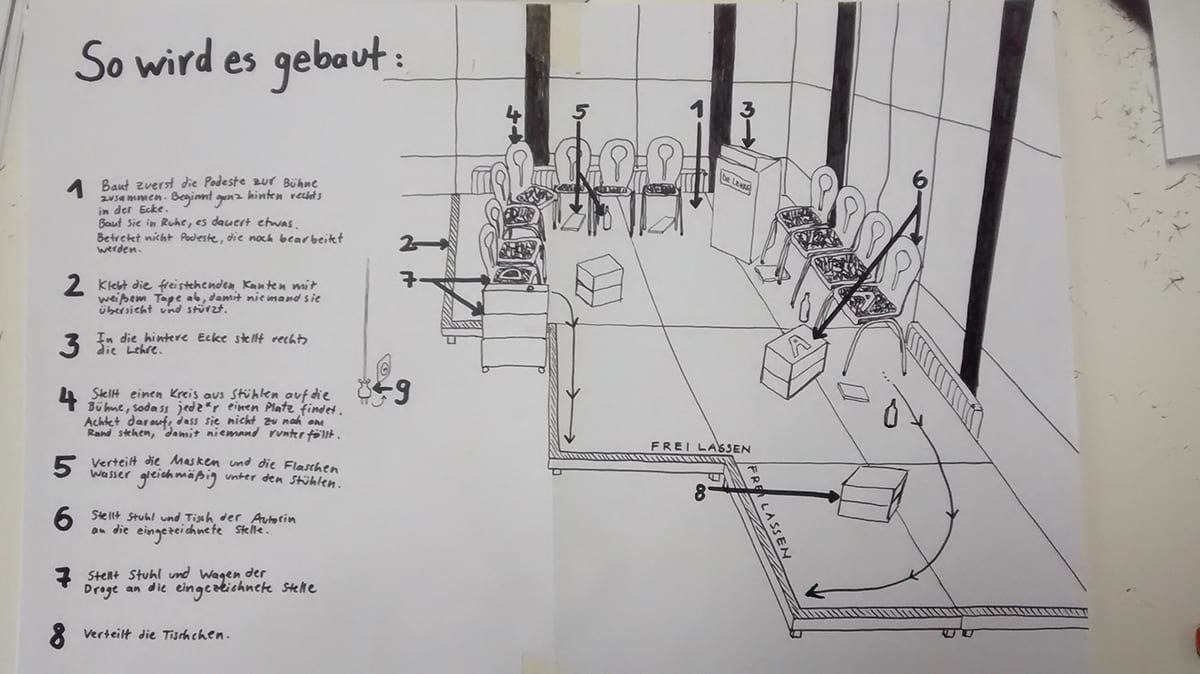 So wird es gebaut:
1 Baut zuerst die Podeste zur Bühne
zusammen. Beginnt ganz hinten rechts
in der Ecke.
Baut sie in Ruhe, es dauert etwas.
Betretet nicht Podeste, die noch bearbeitet
werden.
2 Klebt die freistehenden Kanten mit
weißem Tape ab, damit niemand sie
übersieht und stürzt.
3 In die hintere Ecke stellt rechts
die Lehre.
4 Stellt einen Kreis aus Stühlen auf die
Bühne, sodass jedε*r einen Platz findet.
Achtet darauf, dass sie nicht zu nah am
Rand stehen, damit niemand runterfällt.
5 Verteilt die Masken und die Flaschen
Wasser gleichmäßig unter den Stühlen.
6 Stellt Stuhl und Tisch der Autorin
an die eingezeichnete Stelle.
7 Stellt Stuhl und Wagen der
Droge an die eingezeichnete Stelle
8 Verteilt die Tischchen.
4
5
1
3
DIE LEHRE
6
2
7
A
9
FREI LASSEN
8
FREI LASSEN